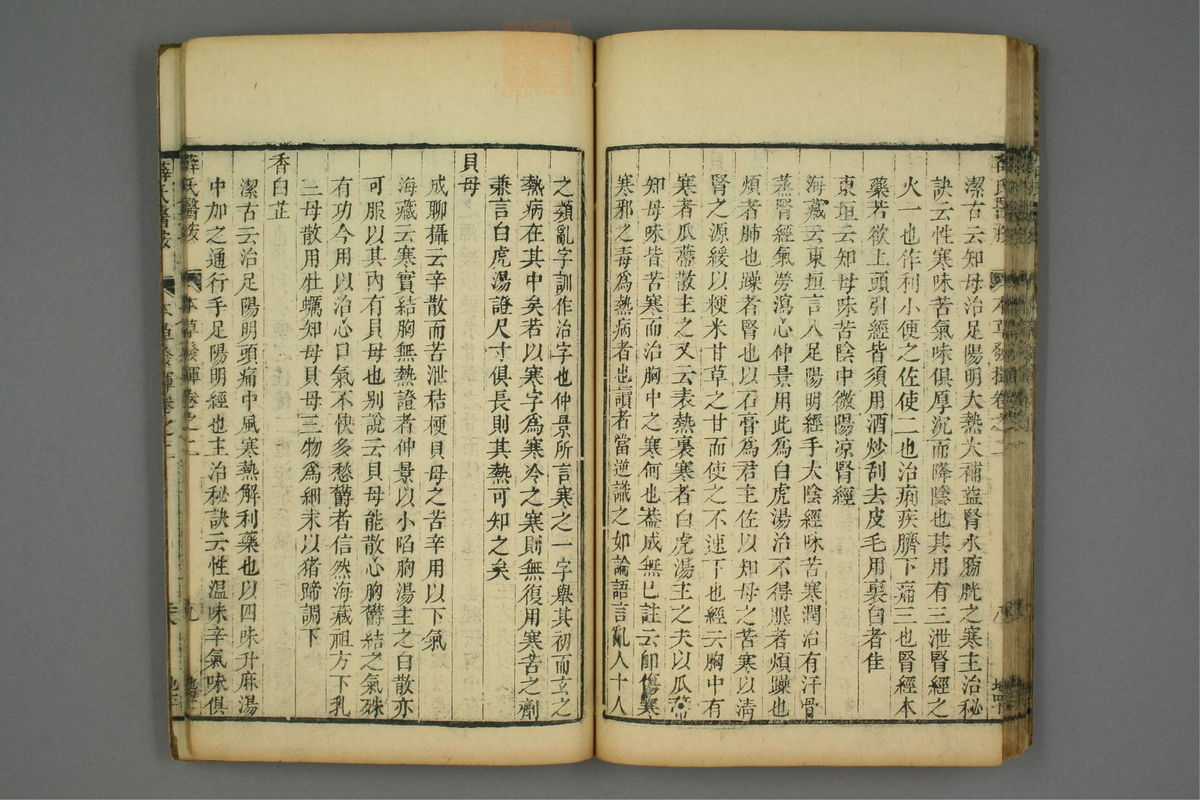 潔古云知母治足陽明大熱大補益腎水膀胱之寒主治秘
訣云性寒味苦氣味俱厚沉而降陰也其用有三泄腎經之
火一也作利小便之佐使二也治痢疾臍下痛三也腎經本
藥若欲上頭引經皆須用酒炒刮去皮毛用裏白者佳
東垣云知母味苦陰中微陽凉腎經
海藏云東垣言入足陽明經手太陰經味苦寒潤治有汗骨
蒸腎經氣勞瀉心仲景用此為白虎湯治不得眠者煩躁也
煩者肺也躁者腎也以石膏為君主佐以知母之苦寒以清
腎之源緩以粳米甘草之甘而使之不速下也經云胸中有
寒者瓜蒂散主之又云表熱裏寒者白虎湯主之夫以瓜蒂
知母味皆苦寒而治胸中之寒何也蓋成無已註云即傷寒
寒邪之毒為熱病者也讀者當逆識之如論語言亂人十人
之類亂字訓作治字也仲景所言寒之一字舉其初而玄之
熱病在其中矣若以寒字為寒冷之寒則無復用寒苦之劑
兼言白虎湯證尺寸俱長則其熱可知之矣
貝母
成聊攝云辛散而苦泄桔梗貝母之苦辛用以下氣
海藏云寒實結胸無熱證者仲景以小陷胸湯主之白散亦
可服以其內有貝母也别說云貝母能散心胸欝結之氣殊
有功今用以治心中氣不快多愁欝者信然海藏祖方下乳
三母散用牡蠣知母貝母三物為細末以猪蹄調下
香白芷
潔古云治足陽明頭痛中風寒熱解利藥也以四味升麻湯
中加之通行手足陽明經也主治秘訣云性溫味辛氣味俱
薛氏醫按
本草發揮卷之二
九